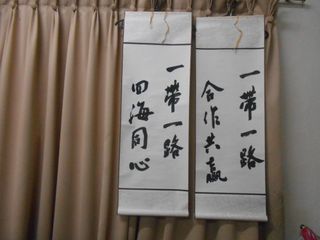 一帶一路
合作共贏
一帶一路
四海同心